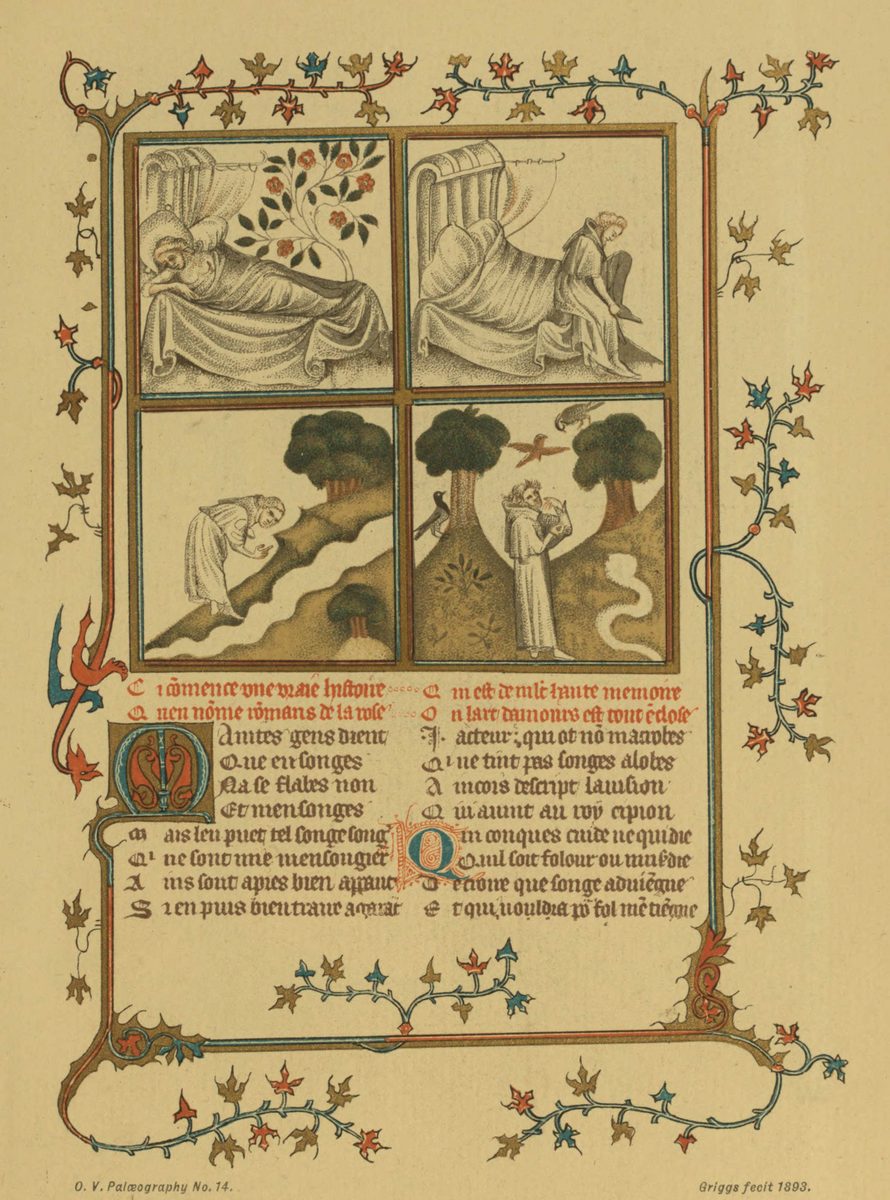 Ci cõmence vne vraie hystoire
Quen nõme rõmans de la rose
Maintes gens dient
Que en songes
Na se flables non
Et mensonges
Mais len puet tel songe song'
Qi ne sont mie mensongier
Ains sont apres bien apparãt
Si en puis bien traire a garãt
Qui est de mlt haute memoire
On lart damours est tout ẽclose
.J. acteur qui ot nõ macrobes
Qi ne tint pas songes a lobes
Aincois descript lauision
Qui auint au roy cipion
Quiconques cuide ne qui die
Quil soit folour ou
De croire que songe aduiẽgne
Et qui uouldra põ fol mẽ tiẽgne
O. V. Palæography No. 14.
Griggs fecit 1893.